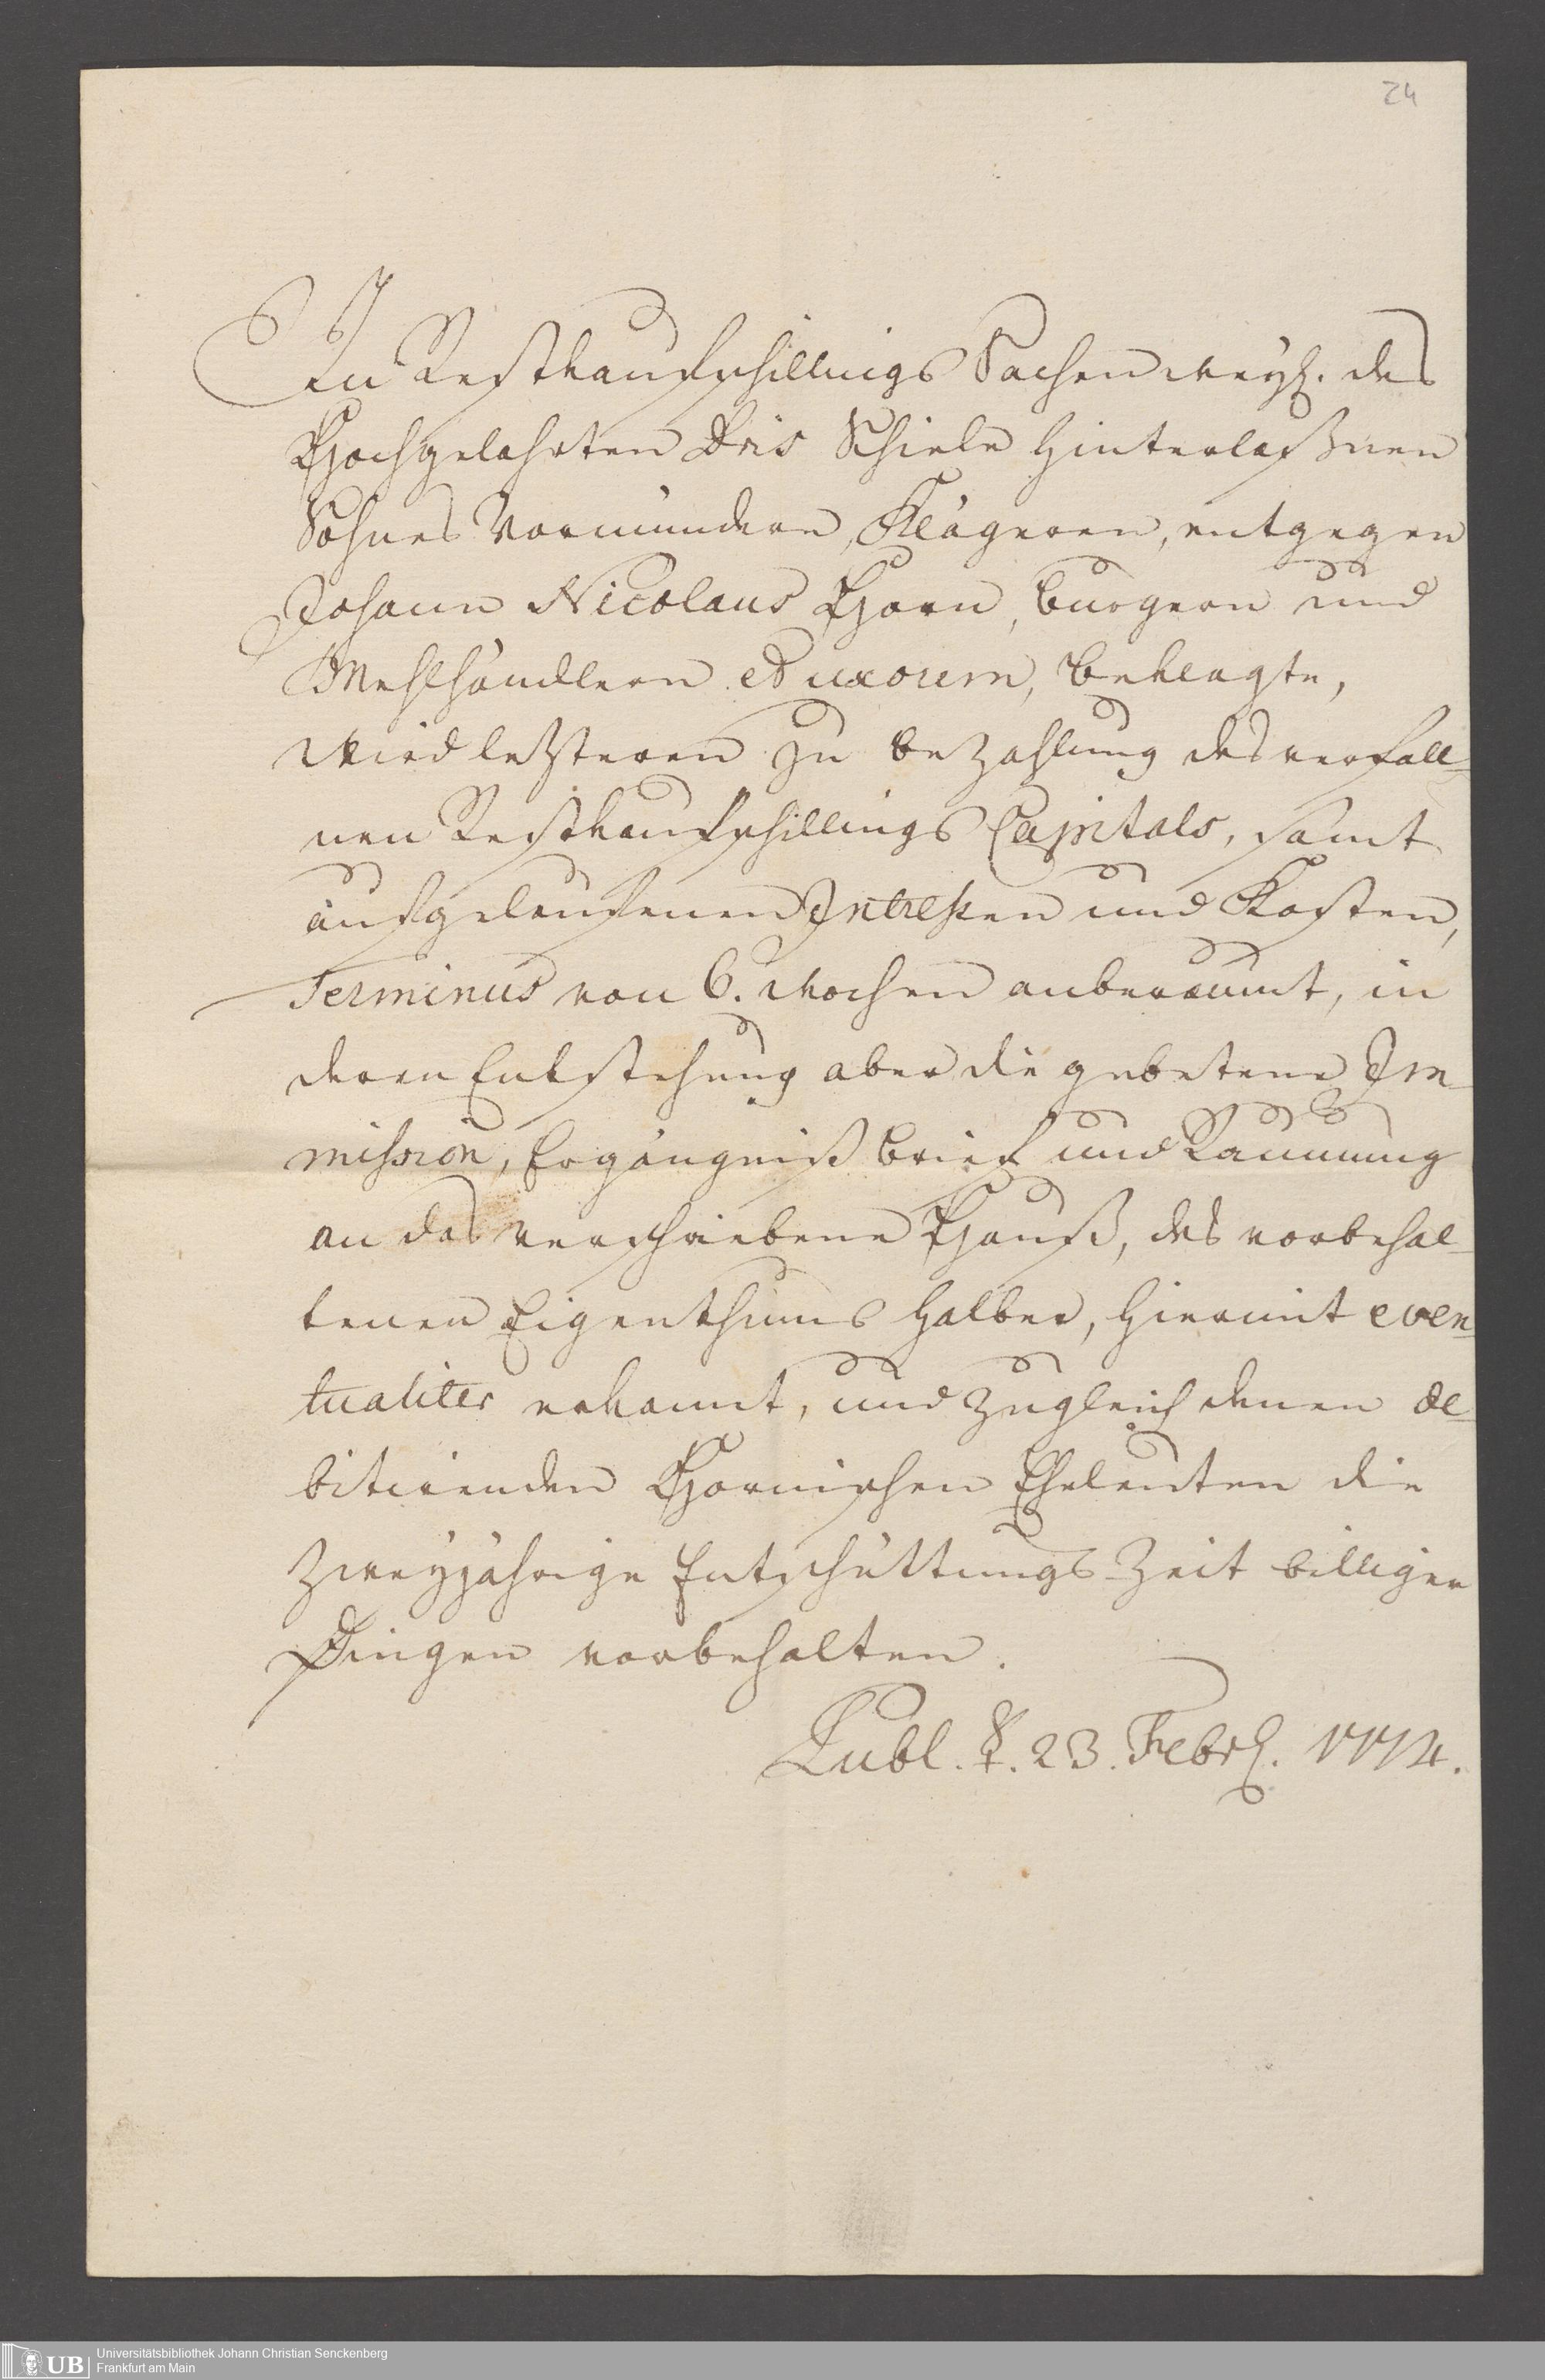 24
In Restkaufschillings Sachen weyl. des
Hochgelahrten Dris Schiele hinterlaßnen
Sohnes Vormündern, Klägeren, entgegen
Johann Nicolaus Horn, burgern und
Mehlhändlern et uxorem, beklagte,
wird letzteren zu bezahlung des verfall-
nen Restkaufschillings Capitals, samt
aufgelaufenen Intreßen und Kosten,
Terminus von 6. Wochen anberaumt, in
deren Entstehung aber die gebetene Im-
mission, Ergängniß brief und Raumung
an das verschriebene Hauß, des vorbehal-
tenen Eigenthums halber, hiermit even-
tualiter erkannt, und zugleich denen de-
bitirenden Hornischen Eheleuten die
zweyjährige Entschüttungs-Zeit billiger
Dingen vorbehalten.
Publ. d. 23. Febr. 1774.
UB
Universitätsbibliothek Johann Christian Senckenberg
Frankfurt am Main